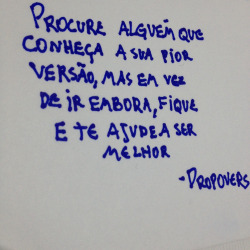 PROCURE ALGUÉM QUE
CONHEÇA A SUA PIOR
VERSÃO, MAS EM VEZ
DE IR EMBORA, FIQUE
E TE AJUDE A SER
MELHOR
-DROPOVERS